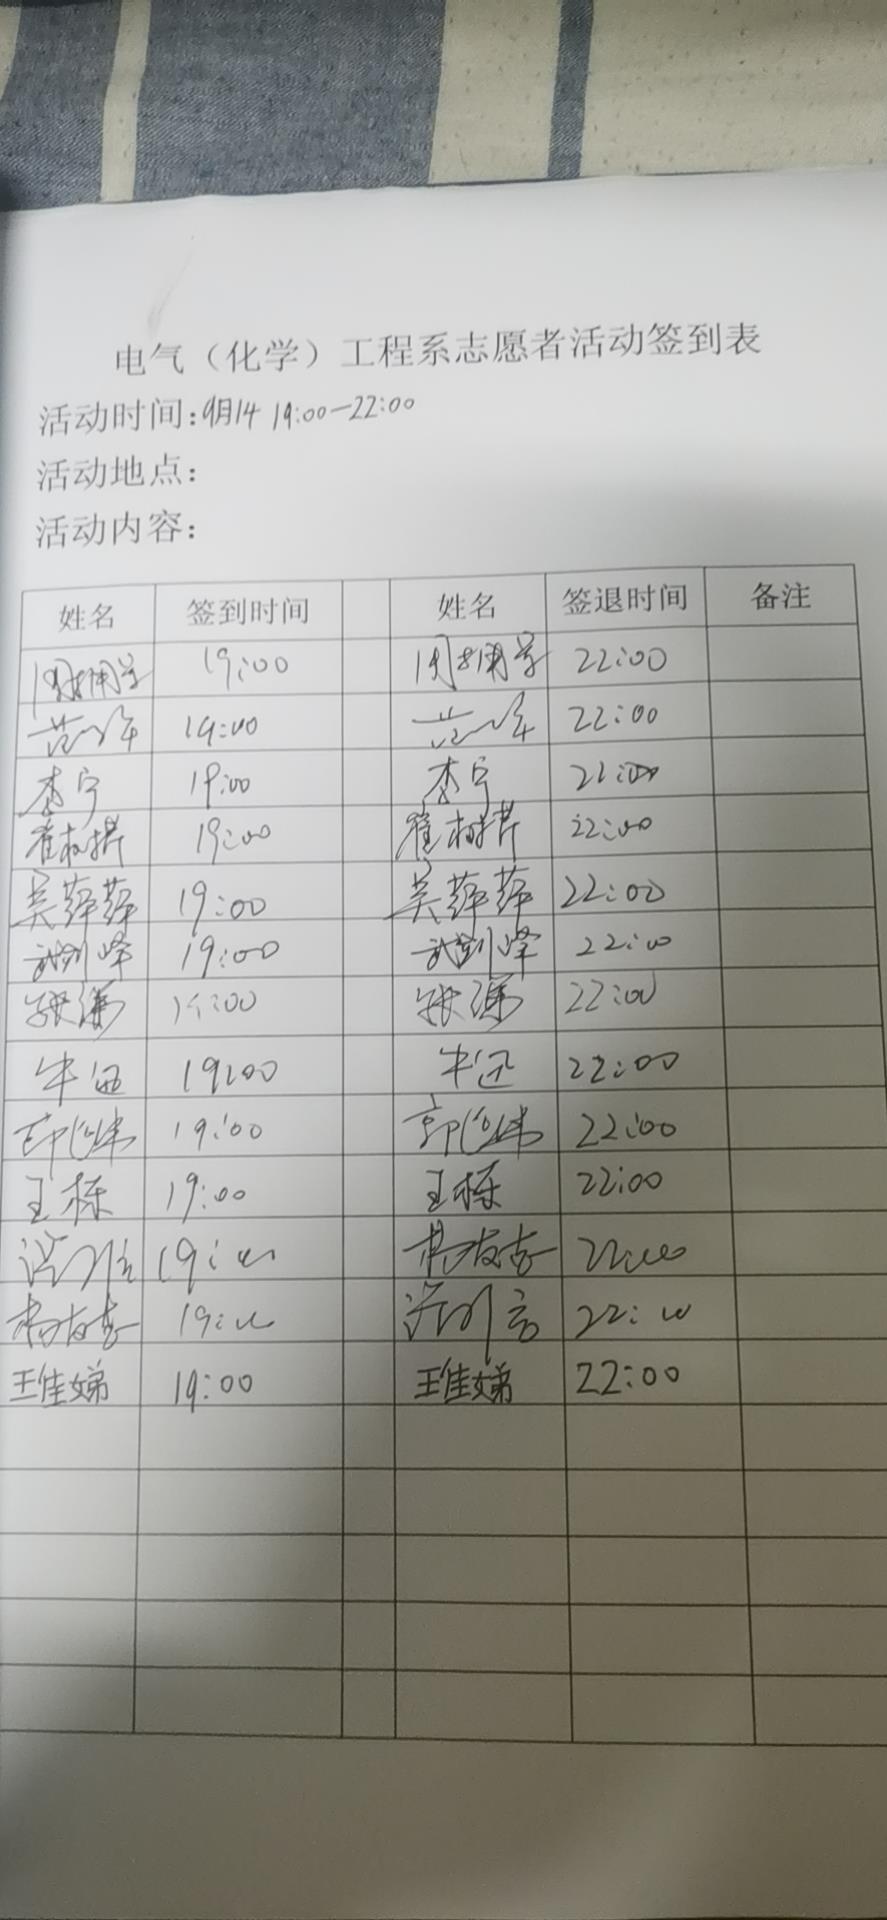 电气（化学）工程系志愿者活动签到表
活动时间:9月14 19:00-22:00
活动地点:
活动内容:
姓名 签到时间 姓名 签退时间 备注
19:00 22:00
19:00 22:00
李宁 19:00 李宁 22:00
19:00 22:00
吴萍萍 19:00 吴萍萍 22:00
武剑峰 19:00 武剑峰 22:00
张 19:00 张 22:00
牛迅 19:00 牛迅 22:00
19:00 22:00
王栋 19:00 王栋 22:00
19:00 杨友志 22:00
杨友志 19:00 22:00
王佳娣 19:00 王佳娣 22:00